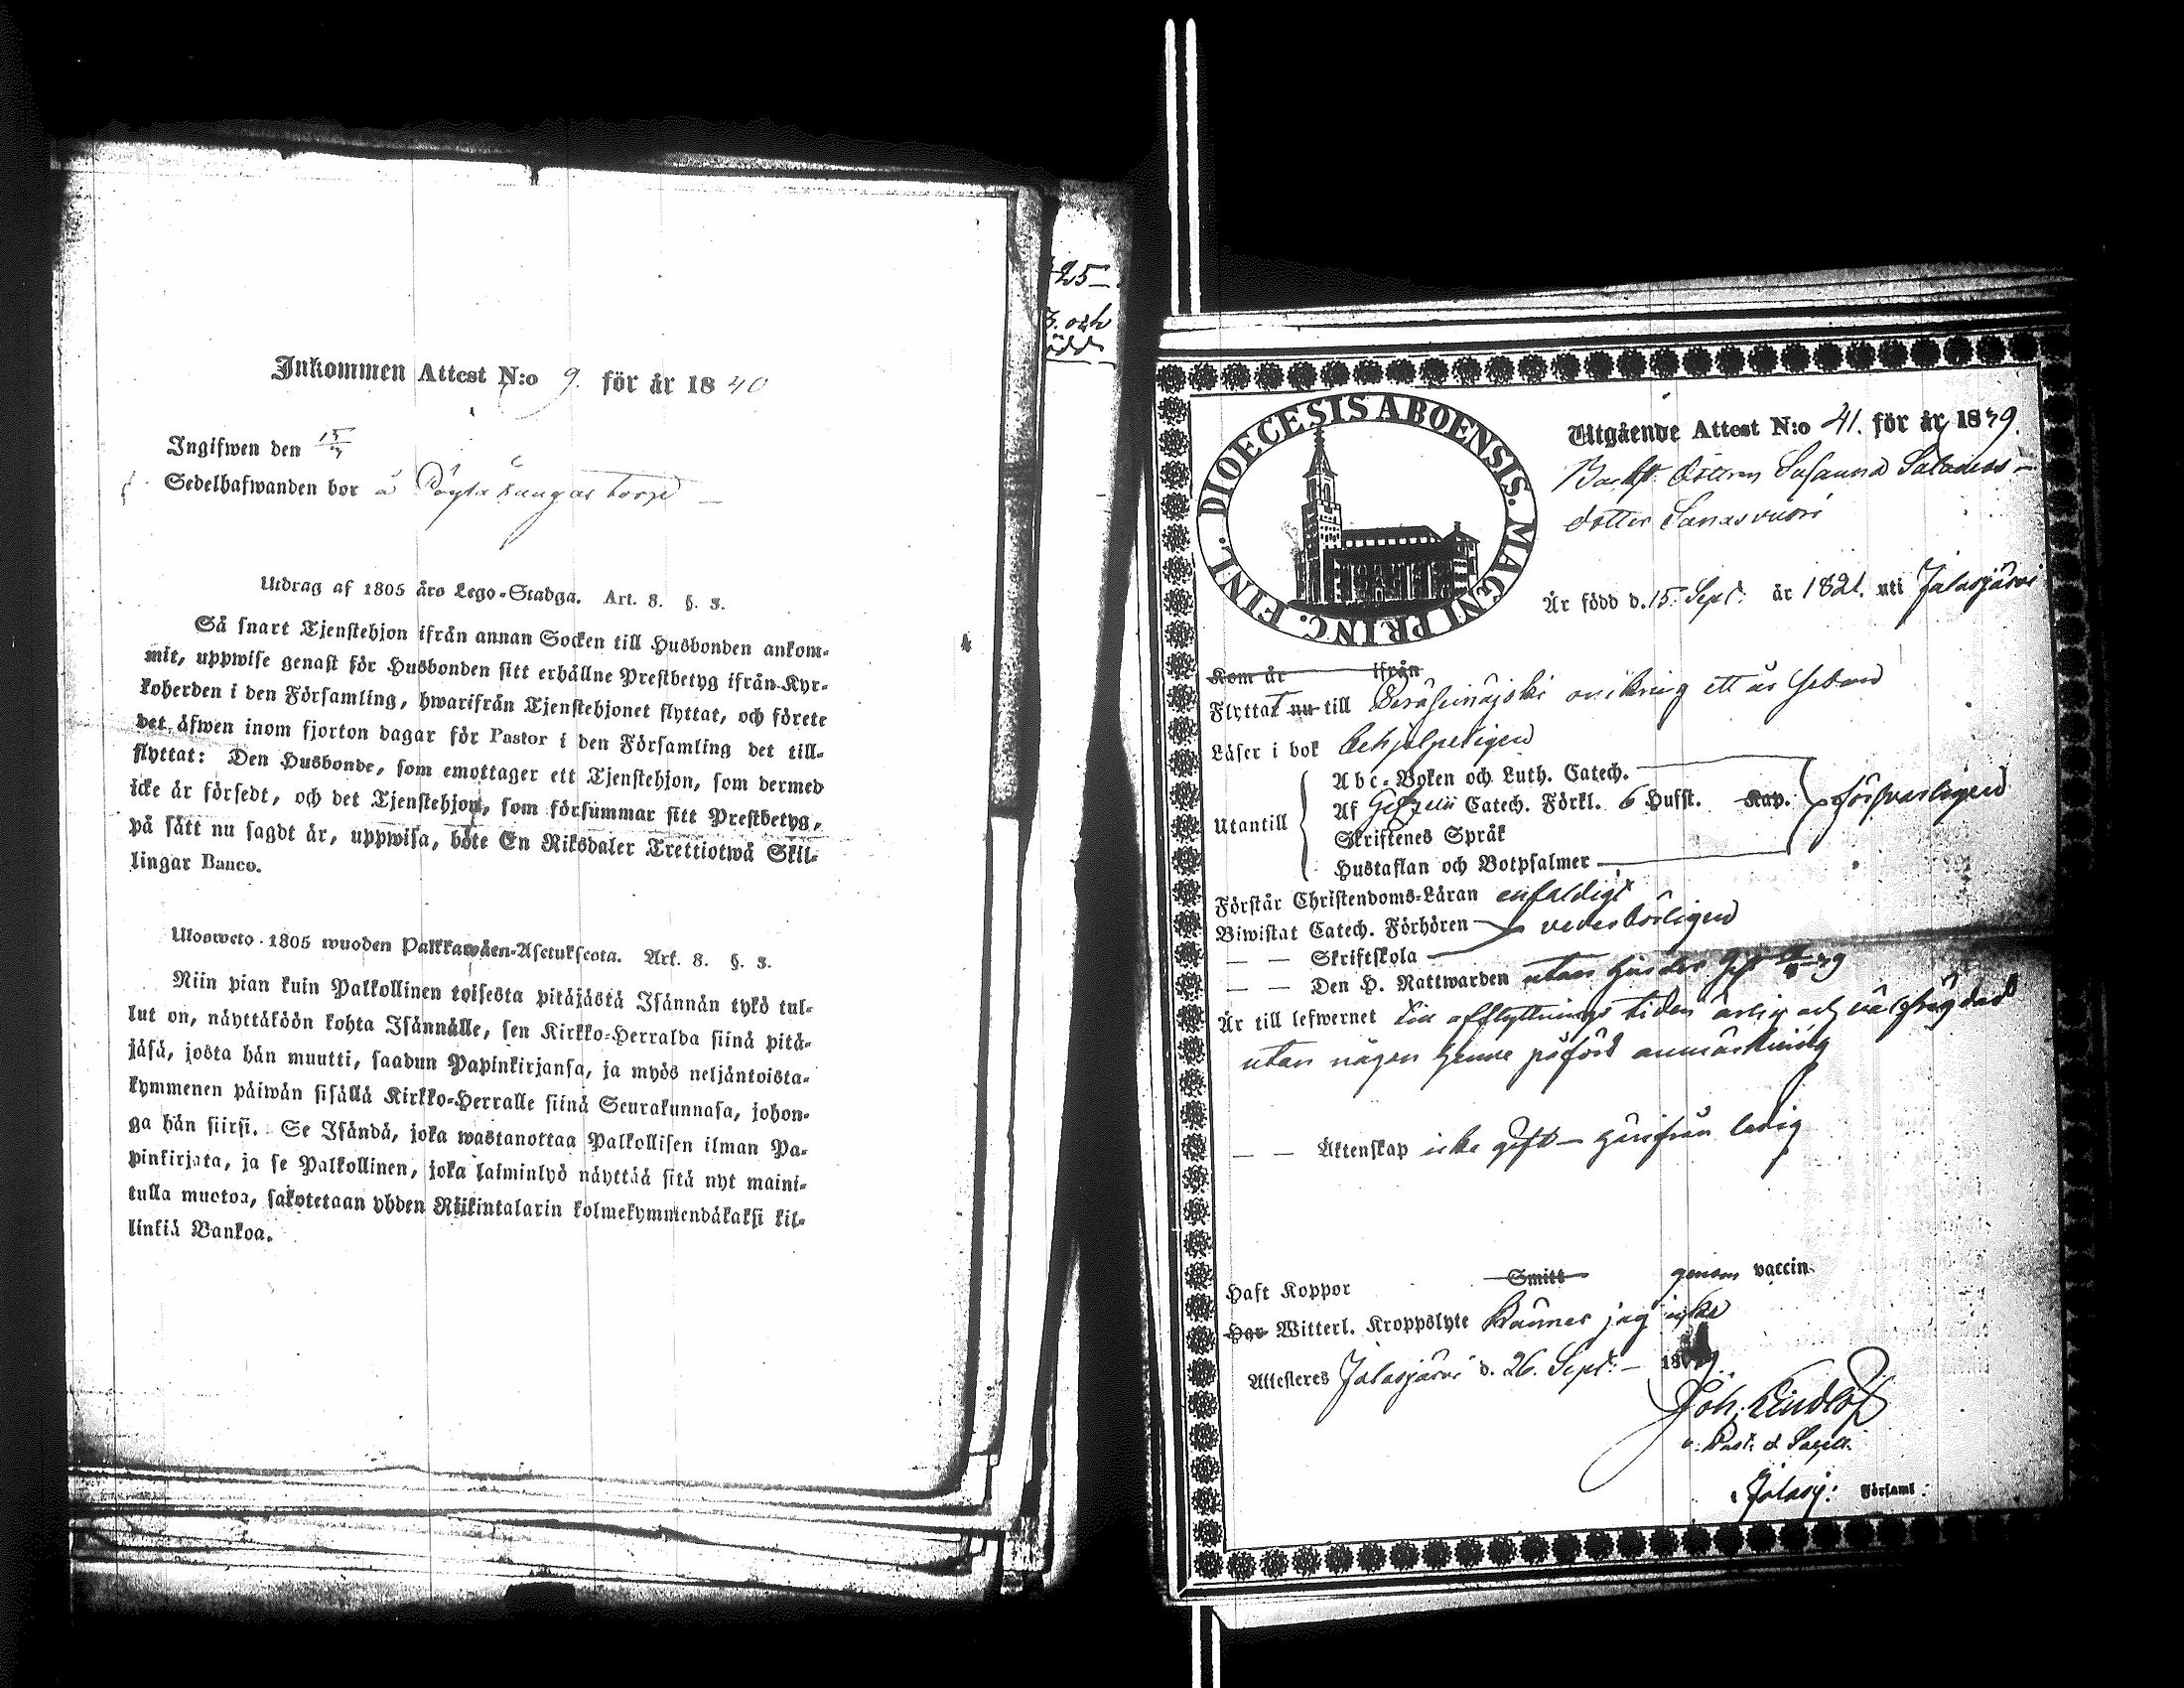 Inkommen Attest N:o 9. för år 1840
Ingifwen den 15/
Sedelhafwanden bor å torp
Utdrag af 1805 års Lego-Stadga. Art. 8. §. 3.
Så snart Tjenstehjon ifrån annan Socken till Husbonden ankom-
mit, uppwise genast för Husbonden sitt erhållne Prestbetyg ifrån Kyr-
koherden i den Församling, hwarifrån Tjenstehjonet flyttat, och förete
det äfwen inom fjorton dagar för Pastor i den Församling det till-
flyttat: Den Husbonde, som emottager ett Tjenstehjon, som dermed
icke är försedt, och det Tjenstehjon, som försummar sitt Prestbetyg,
på sätt nu sagdt är, uppwisa, böte En Riksdaler Trettiotwå Skil-
lingar Banco.
Ulosweto 1805 wuoden Palkkawäen-Asetuksesta. Art. 8. §. 3.
Niin pian kuin Palkollinen toisesta pitäjästä Isännän tykö tul-
lut on, näyttäköön kohta Isännälle, sen Kirkko-Herralda siinä pitä-
jäsä, josta hän muutti, saadun Papinkirjansa, ja myös neljäntoista-
kymmenen päiwän sisällä Kirkko-Herralle siinä Seurakunnasa, johon-
ga hän siirsi. Se Isändä, joka wastanottaa Palkollisen ilman Pa-
pinkirjata, ja se Palkollinen, joka laiminlyö näyttää sitä nyt maini-
tulla muotoa, sakotetaan yhden Riikintalarin kolmekymmendäkaksi kil-
linkiä Bankoa.
25
3. och
född
DIOECESIS ABOENSIS. MAGNI PRINC. FINL.
Utgående Attest N:o 41. för år 1839.
Dottren Susanna Salomons-
dotter
Är född d. 15 Sept: år 1821. uti Jalasjärvi
Kom år ifrån
Flyttat nu till omkring ett år sedan
Läser i bok behjelpeligen
Abc-Boken och Luth. Catech.
Utantill Af Gezelii Catech. Förkl. 6 Hufst. Kap. försvarligen
Skriftenes Språk
Hustaflan och Botpsalmer
Förstår Christendoms-Läran enfaldigt
Biwistat Catech. Förhören vederbörligen
— — Skriftskola
— — Den H. Nattwarden utan hinder 39
Är till lefwernet till afflyttnings tiden ärlig och välfrägdad
utan någon henne påförd anmärkning
— — Äktenskap icke gift – härifrån ledig
Haft Koppor Smitt genom vaccin
Har Witterl. Kroppslyte känner jag icke
Attesteres Jalasjärvi d. 26. Sept: – 18
Joh. Lindlöf
v. Past. & Sacell.
i Jalasj: Församl: